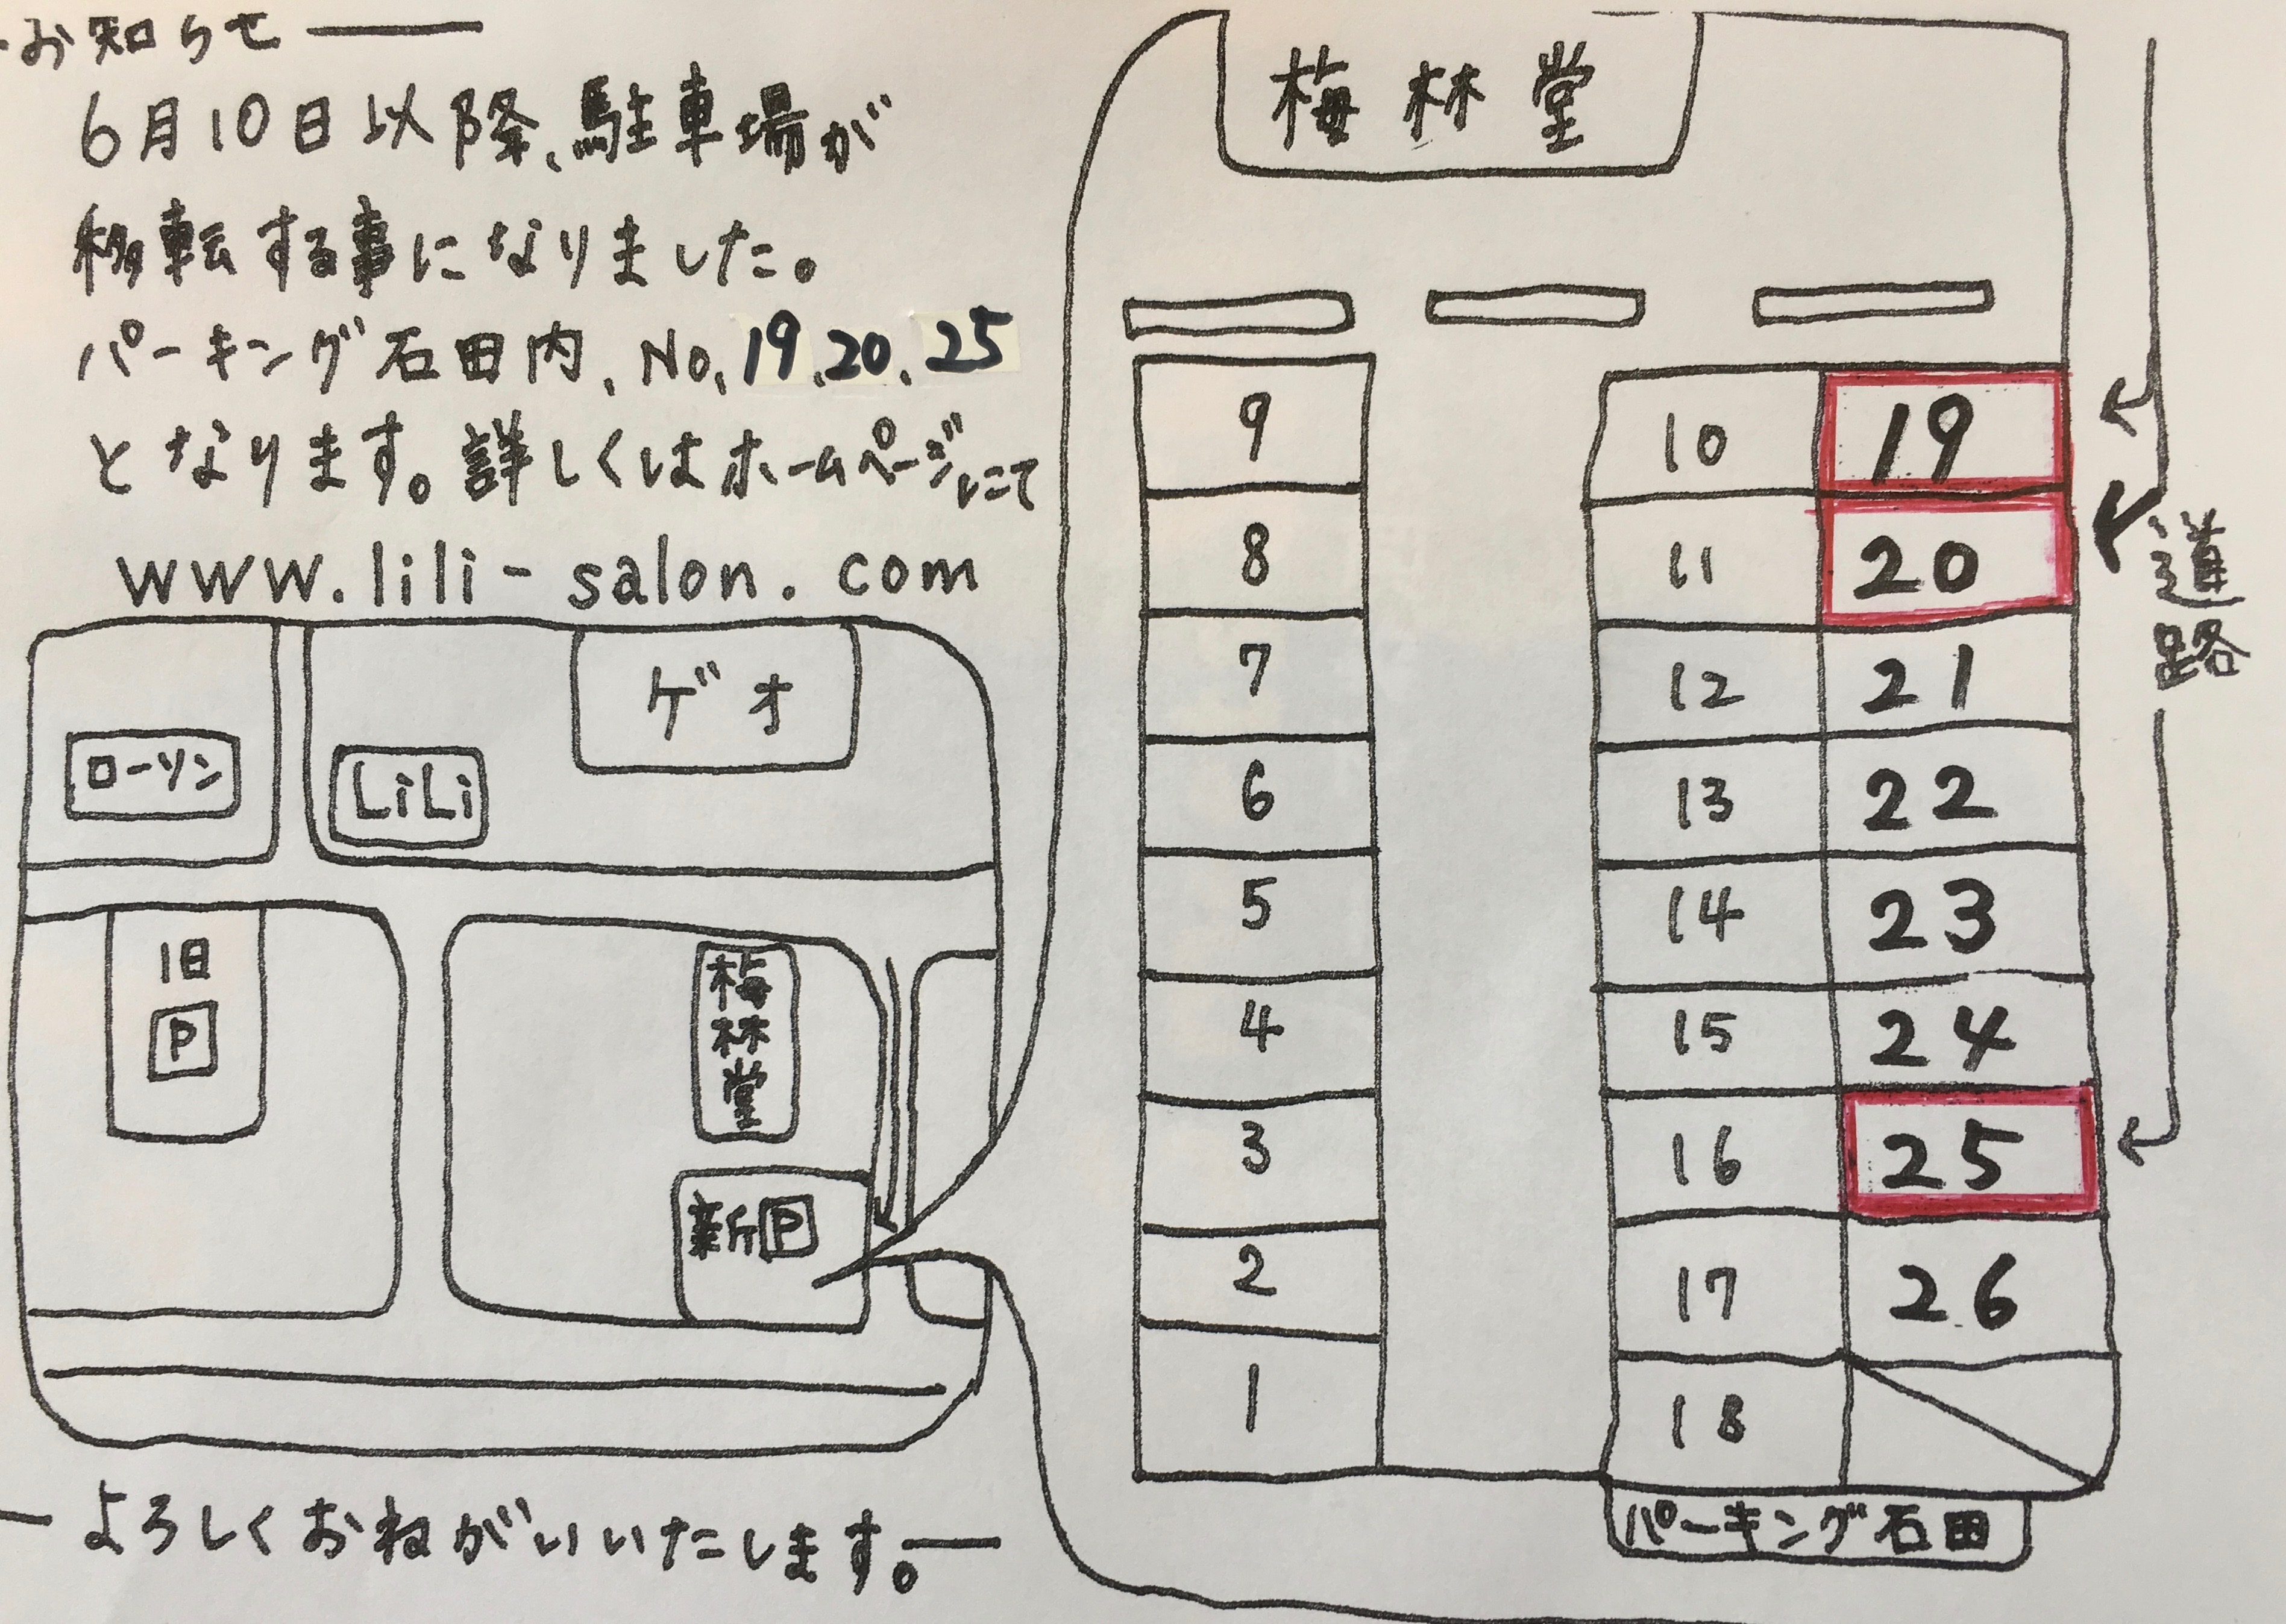 お知らせ
6月10日以降、駐車場が
移転する事になりました。
パーキング石田内、No.19.20.25
となります。詳しくはホームページにて
www.lili-salon.com
ローソン
LiLi
ゲオ
旧
P
梅林堂
新P
よろしくおねがいいたします。
梅林堂
9
8
7
6
5
4
3
2
1
10 19
11 20
12 21
13 22
14 23
15 24
16 25
17 26
18
道路
パーキング石田